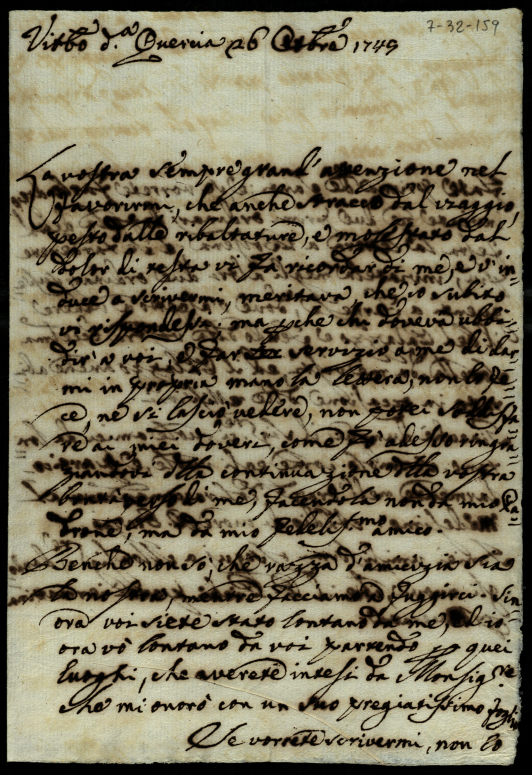 7-32-159
Vitbo d.a Quercia 26 Ottbre 1749
La vostra sempre grand'attenzione nel
favorirmi, che anche stracco dal viaggio,
pesto dalle ribaltature, e molestato dal
dolor di testa vi fà ricordar di me, e v'in=
duce a scrivermi, meritava, che io subito
vi rispondessi: ma pche chi doveva ubbi=
dir a voi, e far servizio a me di dar=
mi in propria mano la lettera, non lo fe=
ce, ne si lasciò vedere, non potei soddisfa=
re ai miei doveri, come fò adesso ringra=
ziandovi della continuazione della vostra
bontà verso di me, facendola non da mio Pa=
drone, ma da mio fedelissmo amico.
Benche non so, che razza d'amicizia sia
la nostra, mentre facciamo a fuggirci. Sin'
ora voi siete stato lontano da me, ed io
ora vò lontano da voi partendo p quei
luoghi, che averete intesi da Monsig.re
che mi onorò con un suo pregiatissimo foglio
Se vorrete scrivermi, non lo